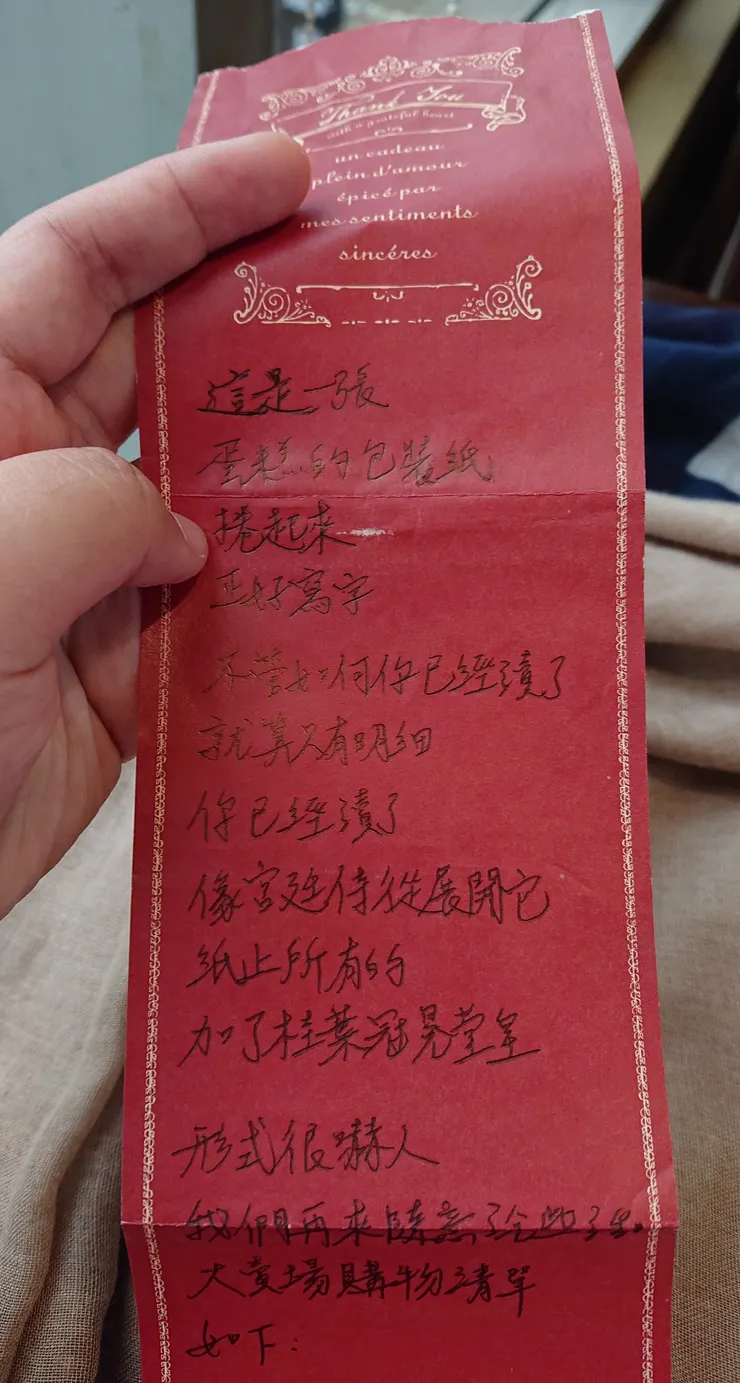 Thank You
with a grateful heart
un cadeau
plein d'amour
épicé par
mes sentiments
sincéres
這是一張
蛋糕的包裝紙
捲起來
正好寫字
不管如何你已經讀了
就算只有明細
你已經讀了
像宮廷侍從展開它
紙上所有的
加了桂葉冠冕堂皇
形式很嚇人
我們再來隨意
大賣場購物清單
如下：